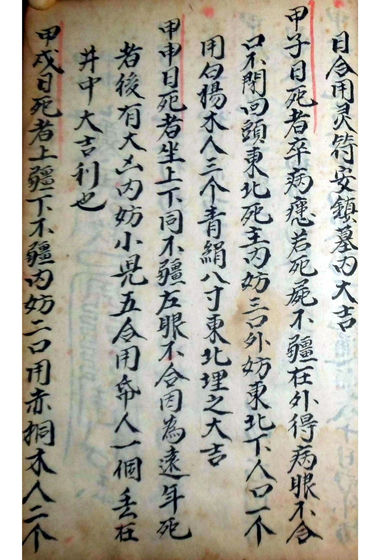 日合用灵符安鎮墓内大吉
甲子日死者卒病瘾若死屍不疆在外得病眼不合
口不閉回頭東北死主内妨三口外妨東北下人口一个
用白楊木人三个青絹八寸東北埋之大吉
甲申日死者坐上下同不疆左眼不合因為遠年死
者後有大凶内妨小児五合用人一個丢在
井中大吉利也
甲戌日死者上疆下不疆内妨二口用赤桐木人二个